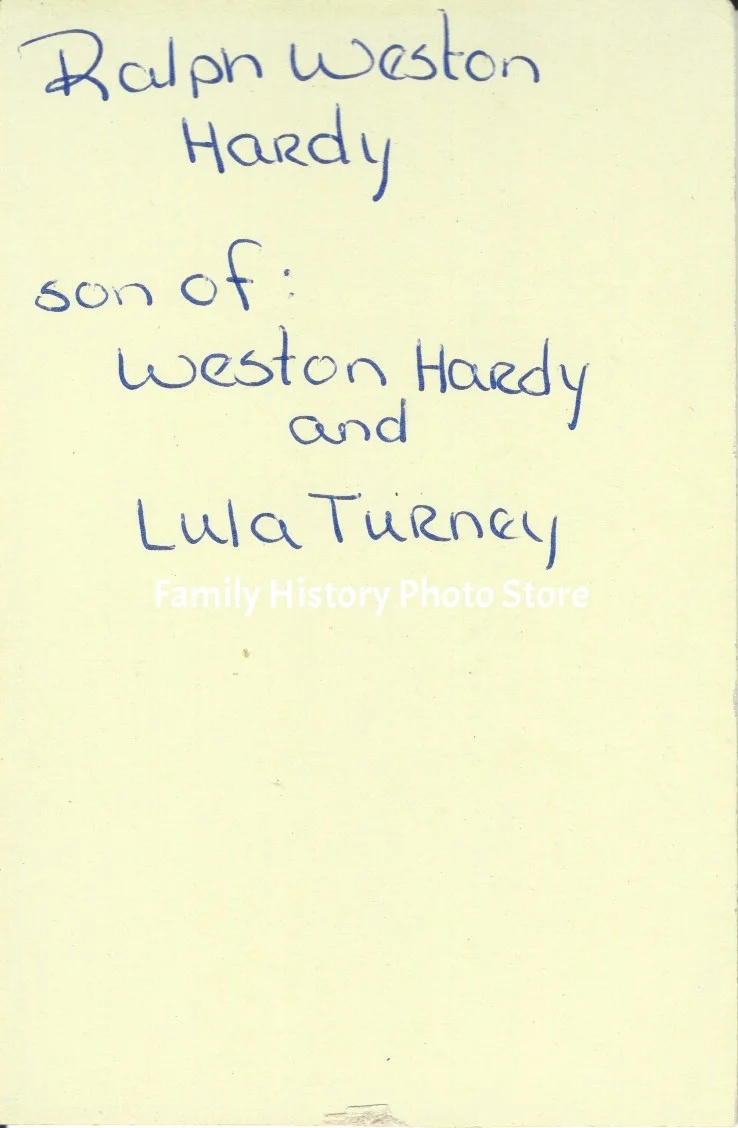 Ralph Weston
Hardy
son of:
Weston Hardy
and
Lula Turney
Family History Photo Store